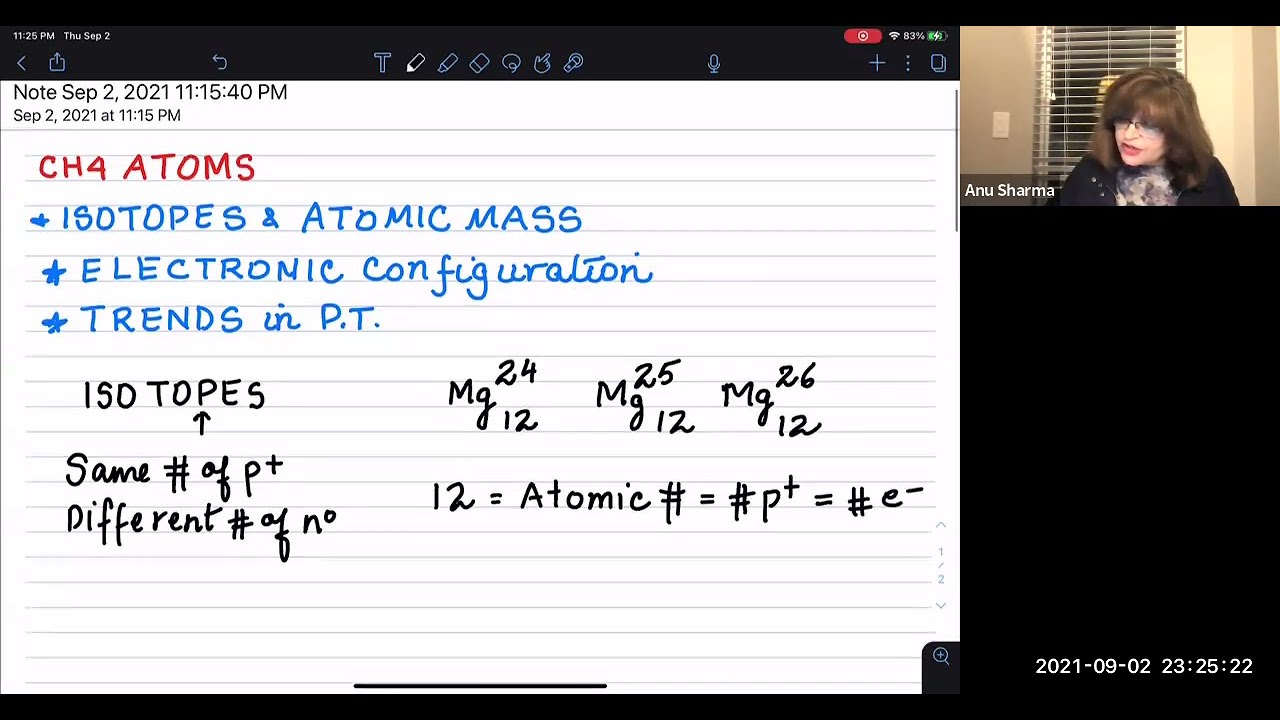 11:25 PM Thu Sep 2
83%
T
Note Sep 2, 2021 11:15:40 PM
Sep 2, 2021 at 11:15 PM
CH4 ATOMS
* ISOTOPES & ATOMIC MASS
* ELECTRONIC Configuration
* TRENDS in P.T.
ISOTOPES
↑
Same # of p⁺
Different # of n⁰
Mg²⁴₁₂ Mg²⁵₁₂ Mg²⁶₁₂
12 = Atomic # = # p⁺ = # e⁻
1
/
2
Anu Sharma
2021-09-02 23:25:22